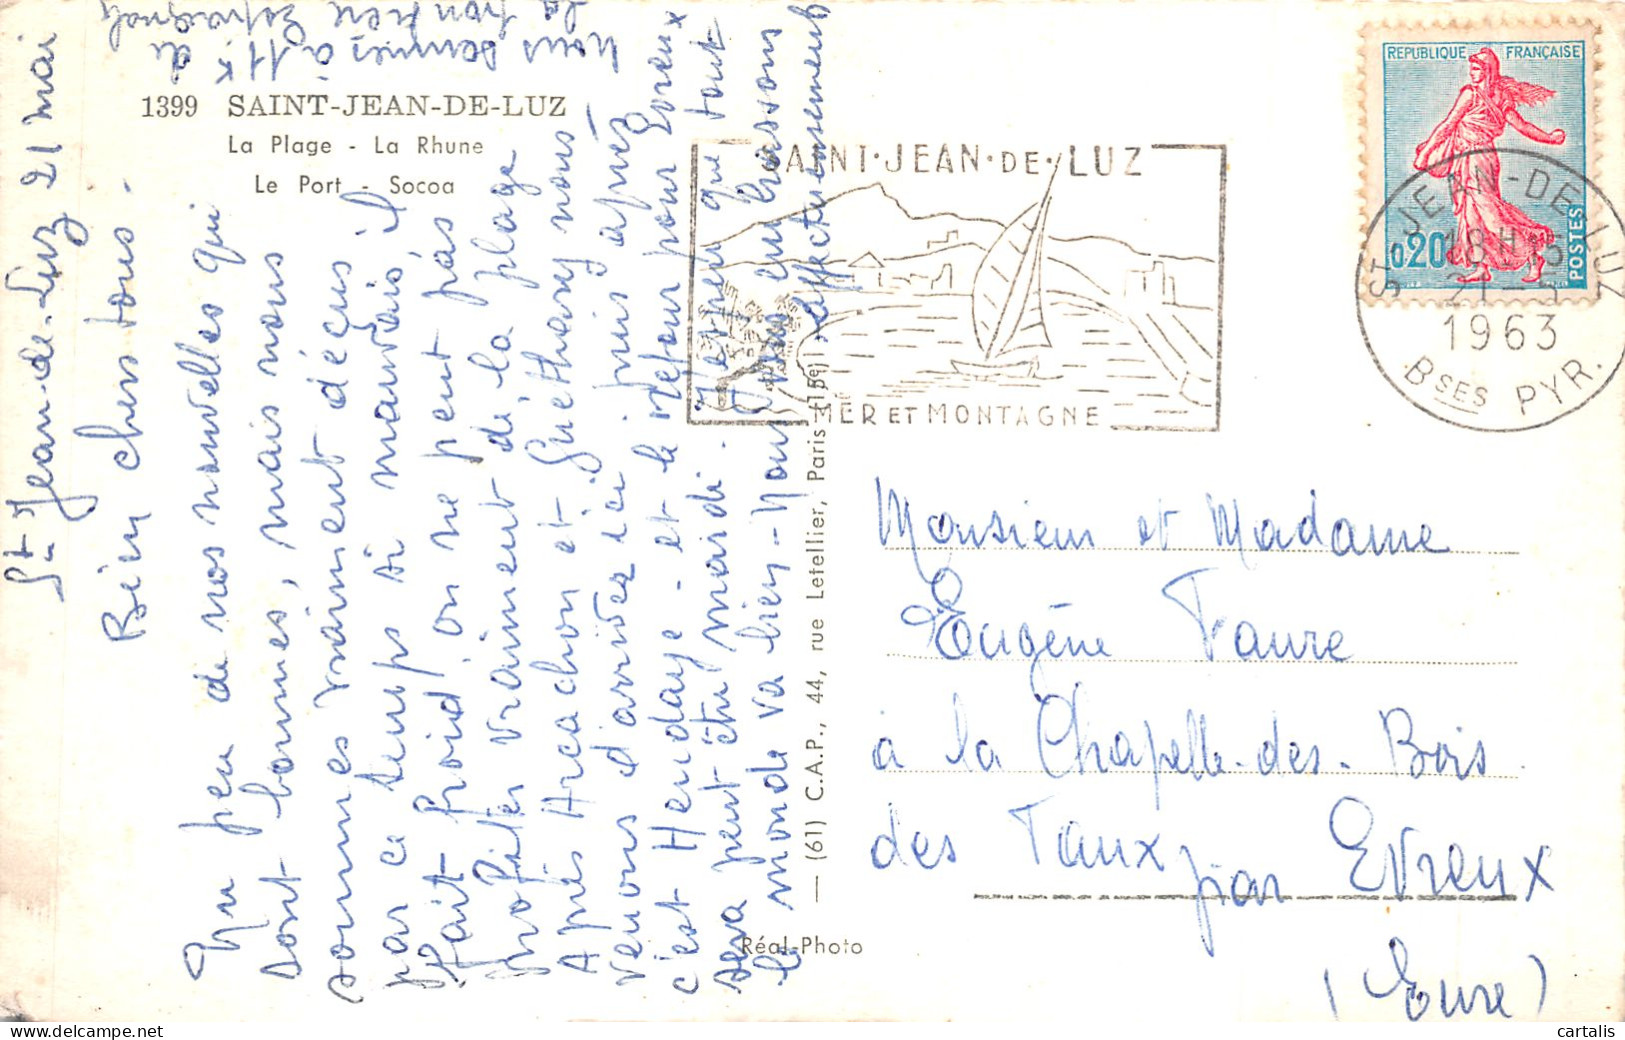 St Jean-de-Luz 21 mai
Bien chers tous.
Un peu de nos nouvelles qui
sont bonnes, mais nous
sommes vraiment déçus
par ce temps si mauvais il
fait froid, on ne peut pas
profiter vraiment de la plage
Après Arcachon et Guéthary nous
venons d'arriver ici, puis après
c'est Hendaye - et le retour pour Evreux
sera peut être mardi. J'espère que tout
le monde va bien - Nous vous embrassons
affectueusement
Nous sommes à 11 K de
la frontière Espagnole
1399 SAINT-JEAN-DE-LUZ
La Plage - La Rhune
Le Port - Socoa
(61) C.A.P., 44, rue Letellier, Paris (15e)
Réal-Photo
SAINT·JEAN·DE·LUZ
MER ET MONTAGNE
REPUBLIQUE FRANÇAISE
0,20
POSTES
ST-JEAN-DE-LUZ
18H15
21-5
1963
BSES PYR.
Monsieur et Madame
Eugène Faure
à la Chapelle-des-Bois
des Faux par Evreux
(Eure)
cartalis